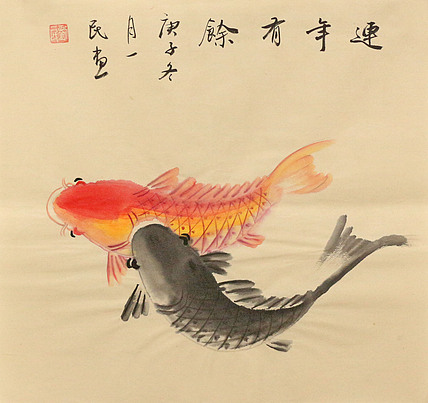 連年有餘
庚子冬
月一
民画